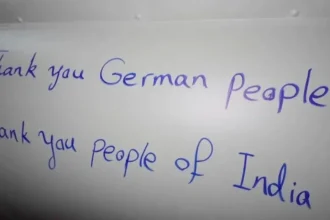 hank you German people
ank you people of India